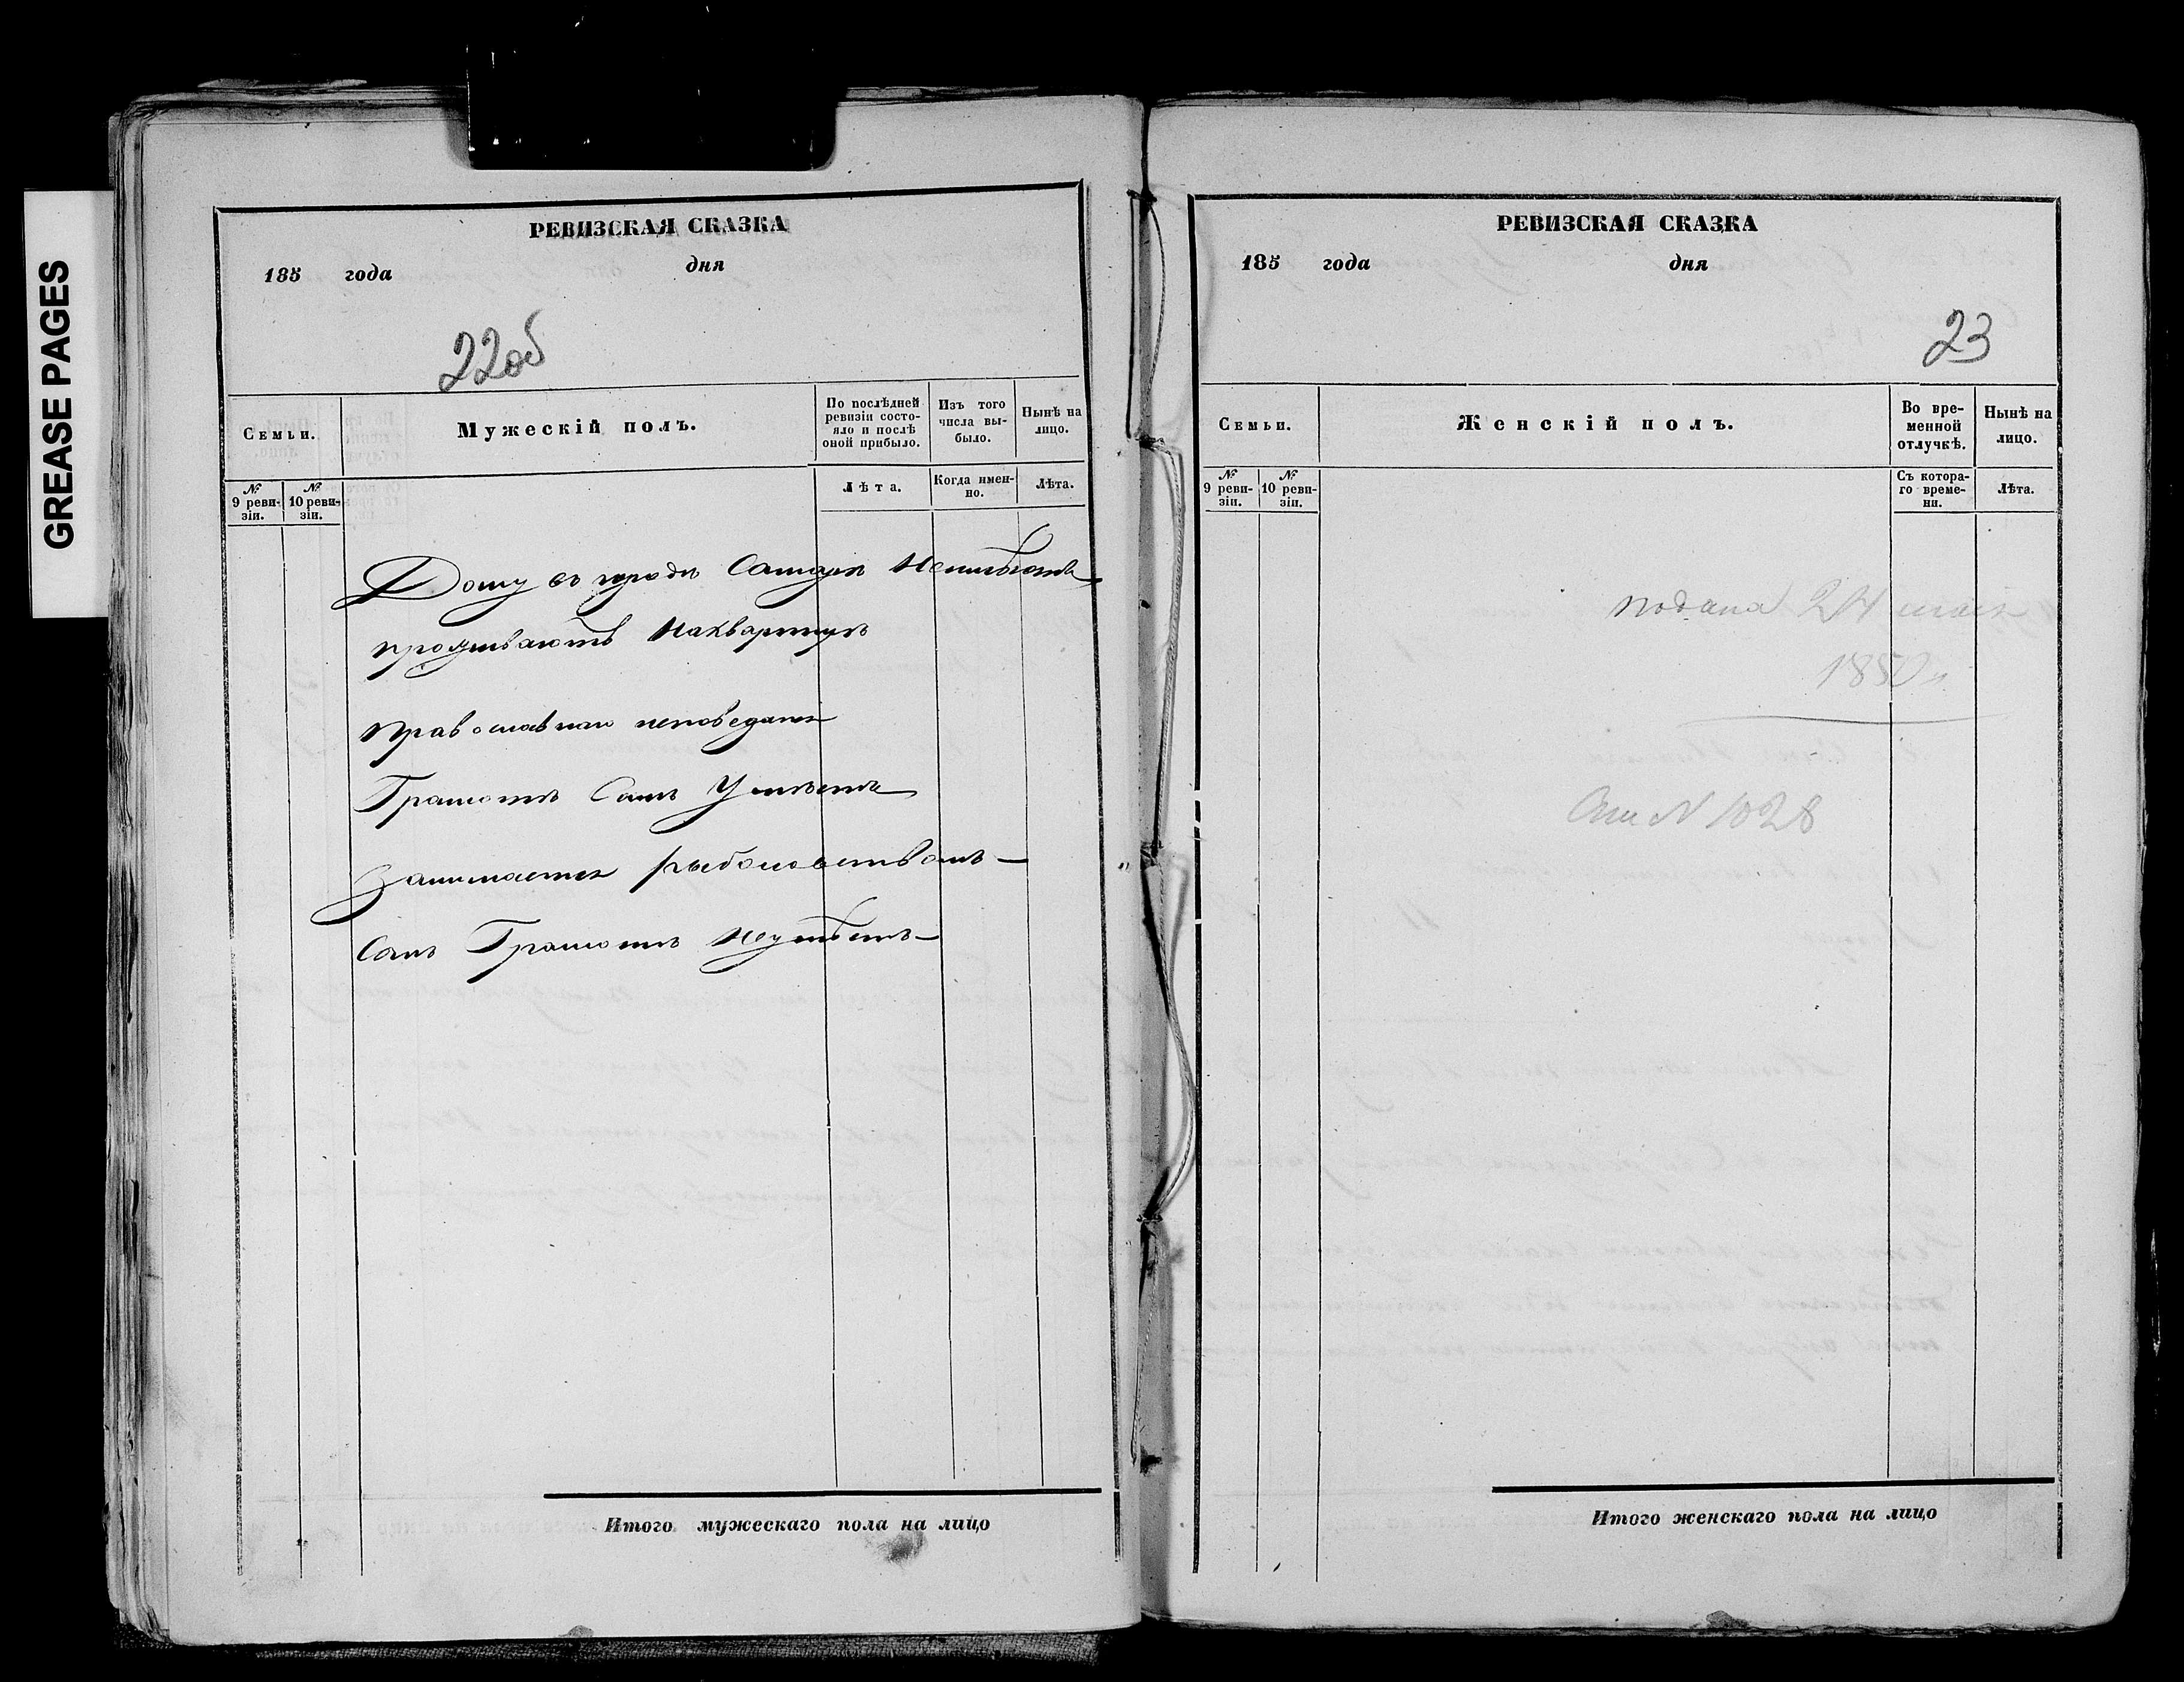 GREASE PAGES
РЕВИЗСКАЯ СКАЗКА
185 года дня
22об
Семьи.
Мужескій полъ.
По послѣдней ревизіи состояло и послѣ оной прибыло.
Изъ того числа выбыло.
Нынѣ на лицо.
№ 9 ревизіи.
№ 10 ревизіи.
Лѣта.
Когда именно.
Лѣта.
Дому въ городѣ Самарѣ Неимѣютъ
проживаютъ наквартирѣ
Православнаго исповеданія
Грамотѣ Самъ Умѣетъ
Занимается рыболовствомъ
Самъ Грамотѣ Неумѣетъ
Итого мужескаго пола на лицо
РЕВИЗСКАЯ СКАЗКА
185 года дня
23
Семьи.
Женскій полъ.
Во временной отлучкѣ.
Нынѣ на лицо.
№ 9 ревизіи.
№ 10 ревизіи.
Съ котораго времени.
Лѣта.
подана 24 мая
1850
№ 1028
Итого женскаго пола на лицо